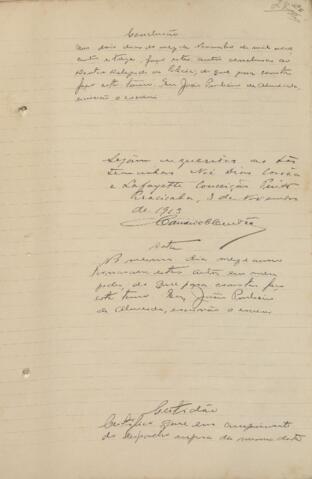 Conclusão
Aos dois dias do mez de Novembro de mil nove
centos e treze, faço estes autos conclusos ao
Doutor Delegado de Policia, do que para constar
faço este termo. Eu, João Pinheiro de Almeida,
escrivão o escrevi
Sejam inqueridas as tes
temunhas Noé Dias Corrêa
e Lafayette Conceição
Piracicaba, 3 de Novembro
de 1913
Data
No mesmo dia mez e anno
foram estes autos em meu
poder, do que para constar fiz
este termo. Eu, João Pinheiro
de Almeida, escrivão o escrevi
Certidão
Certifico que em cumprimento
do despacho supra da mesma data